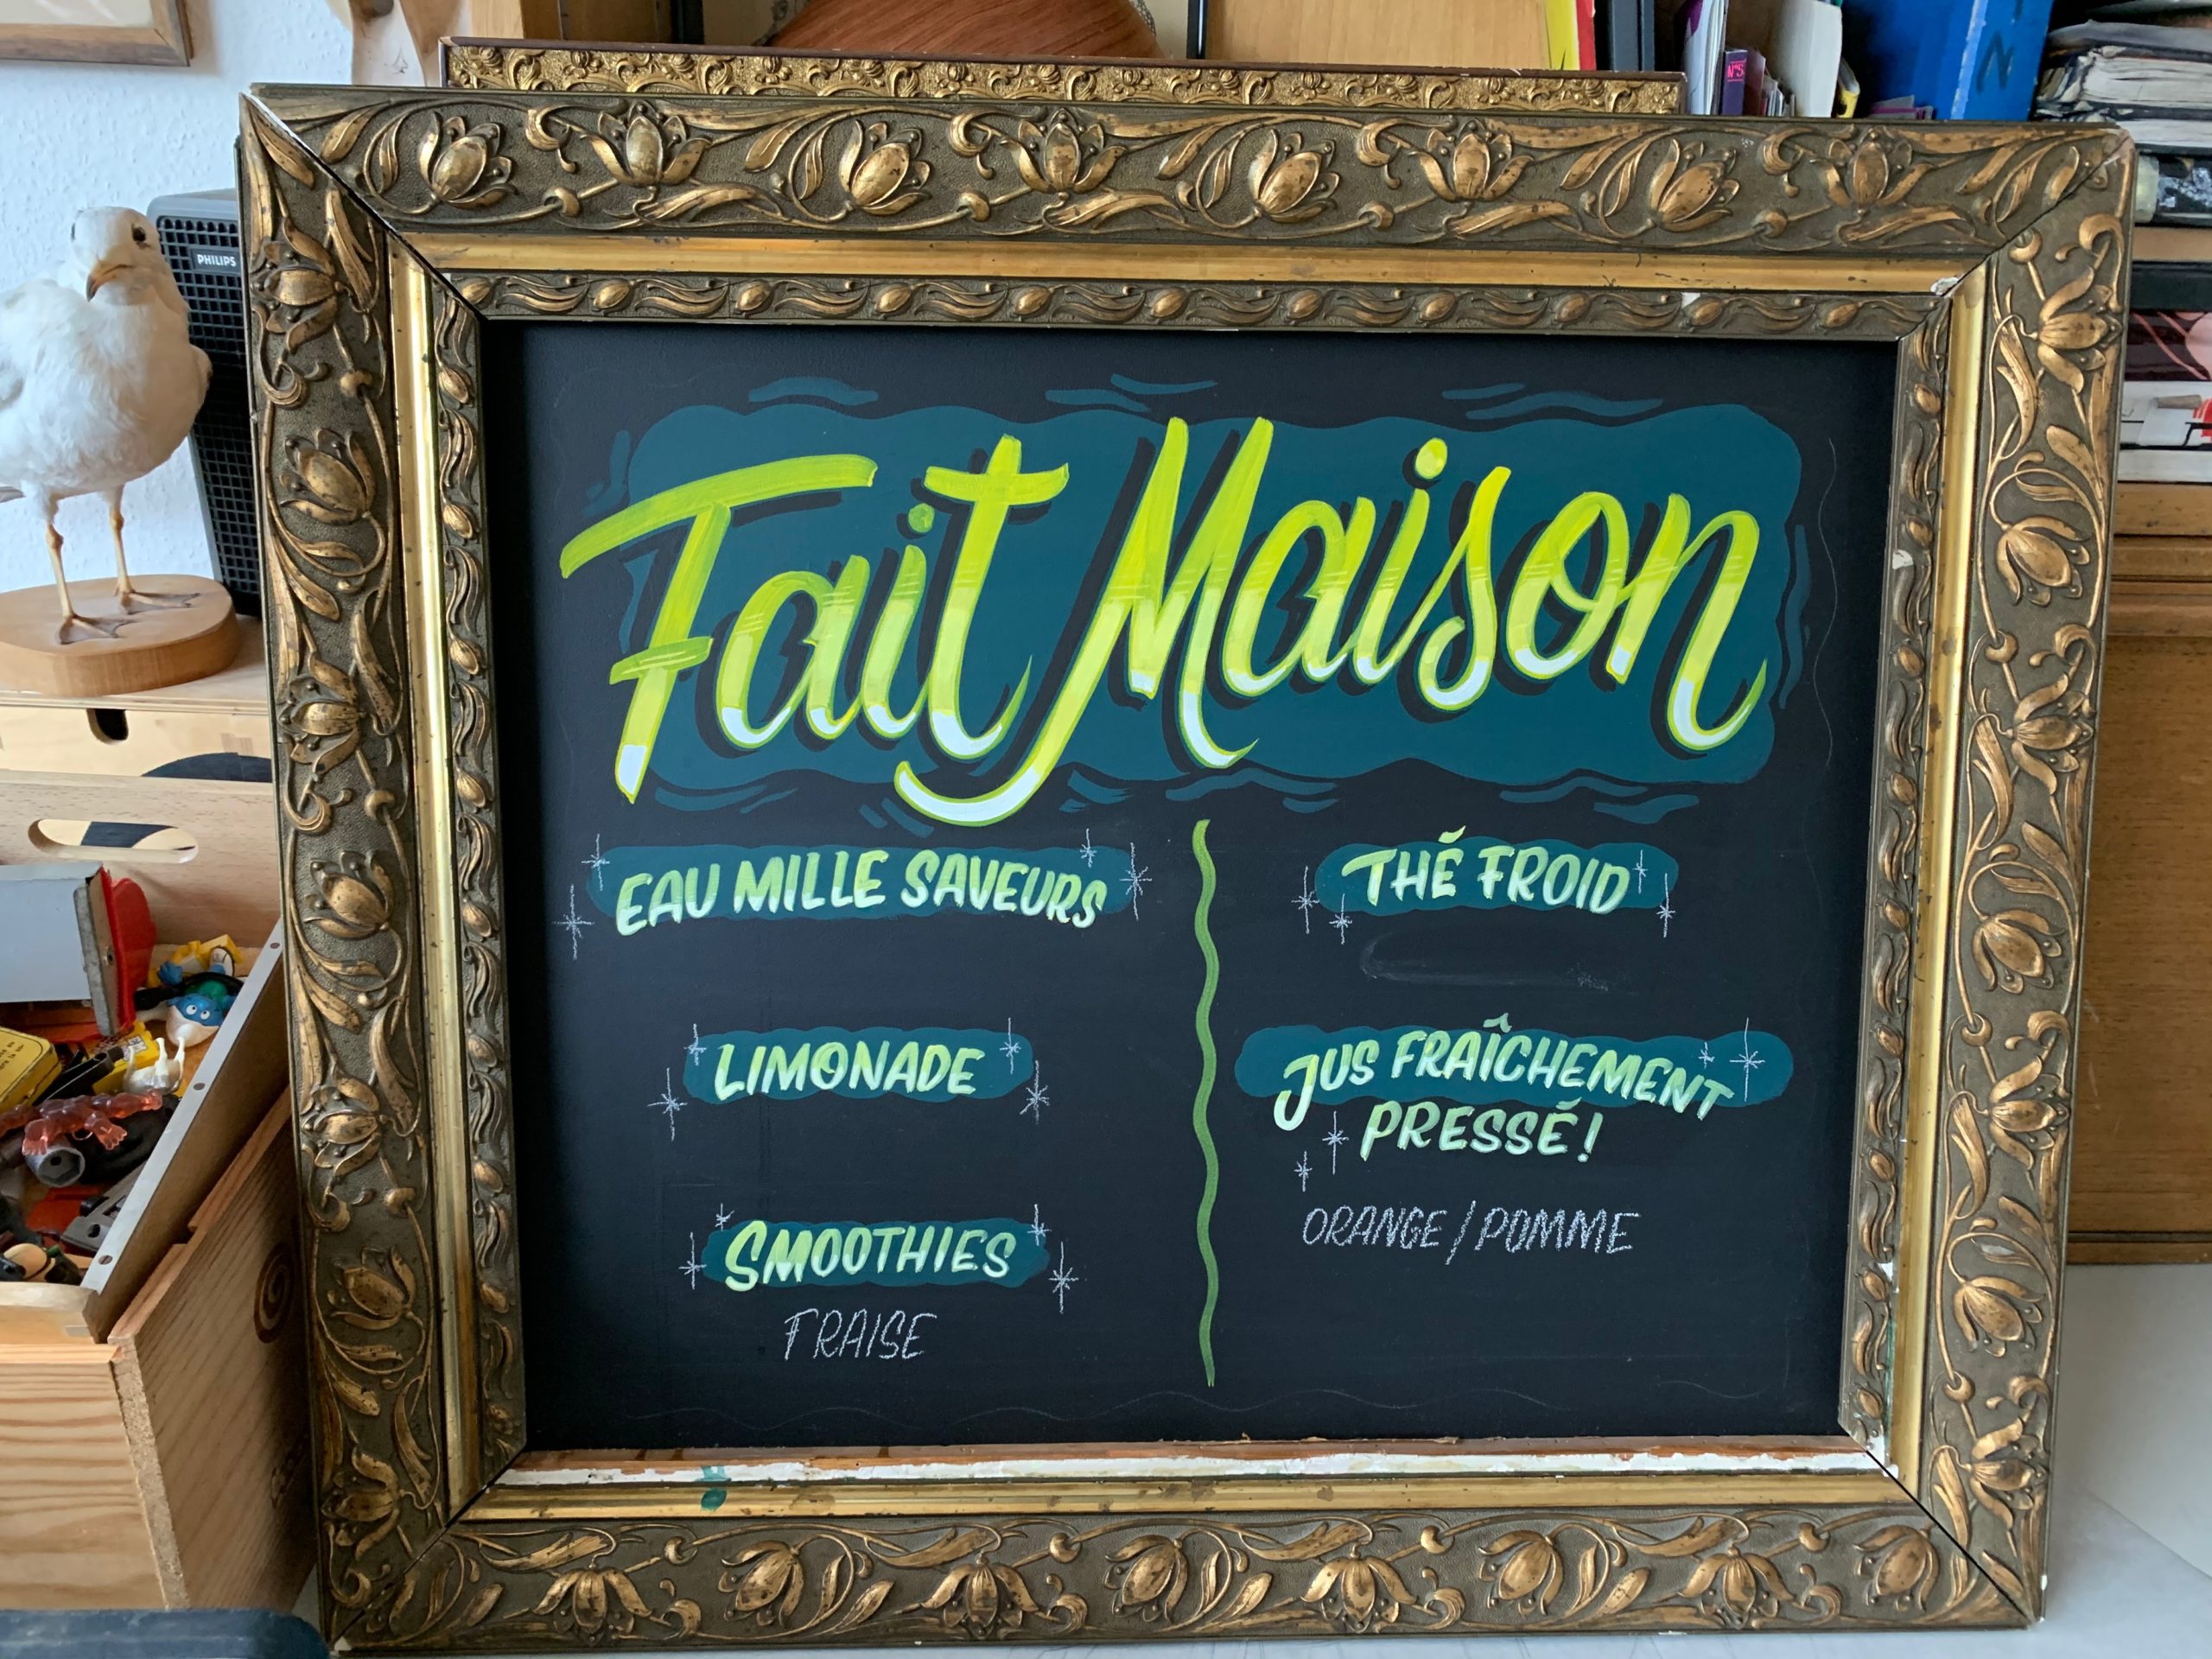 PHILIPS
Fait Maison
EAU MILLE SAVEURS
LIMONADE
SMOOTHIES
FRAISE
THÉ FROID
JUS FRAÎCHEMENT
PRESSÉ!
ORANGE/POMME
N°5